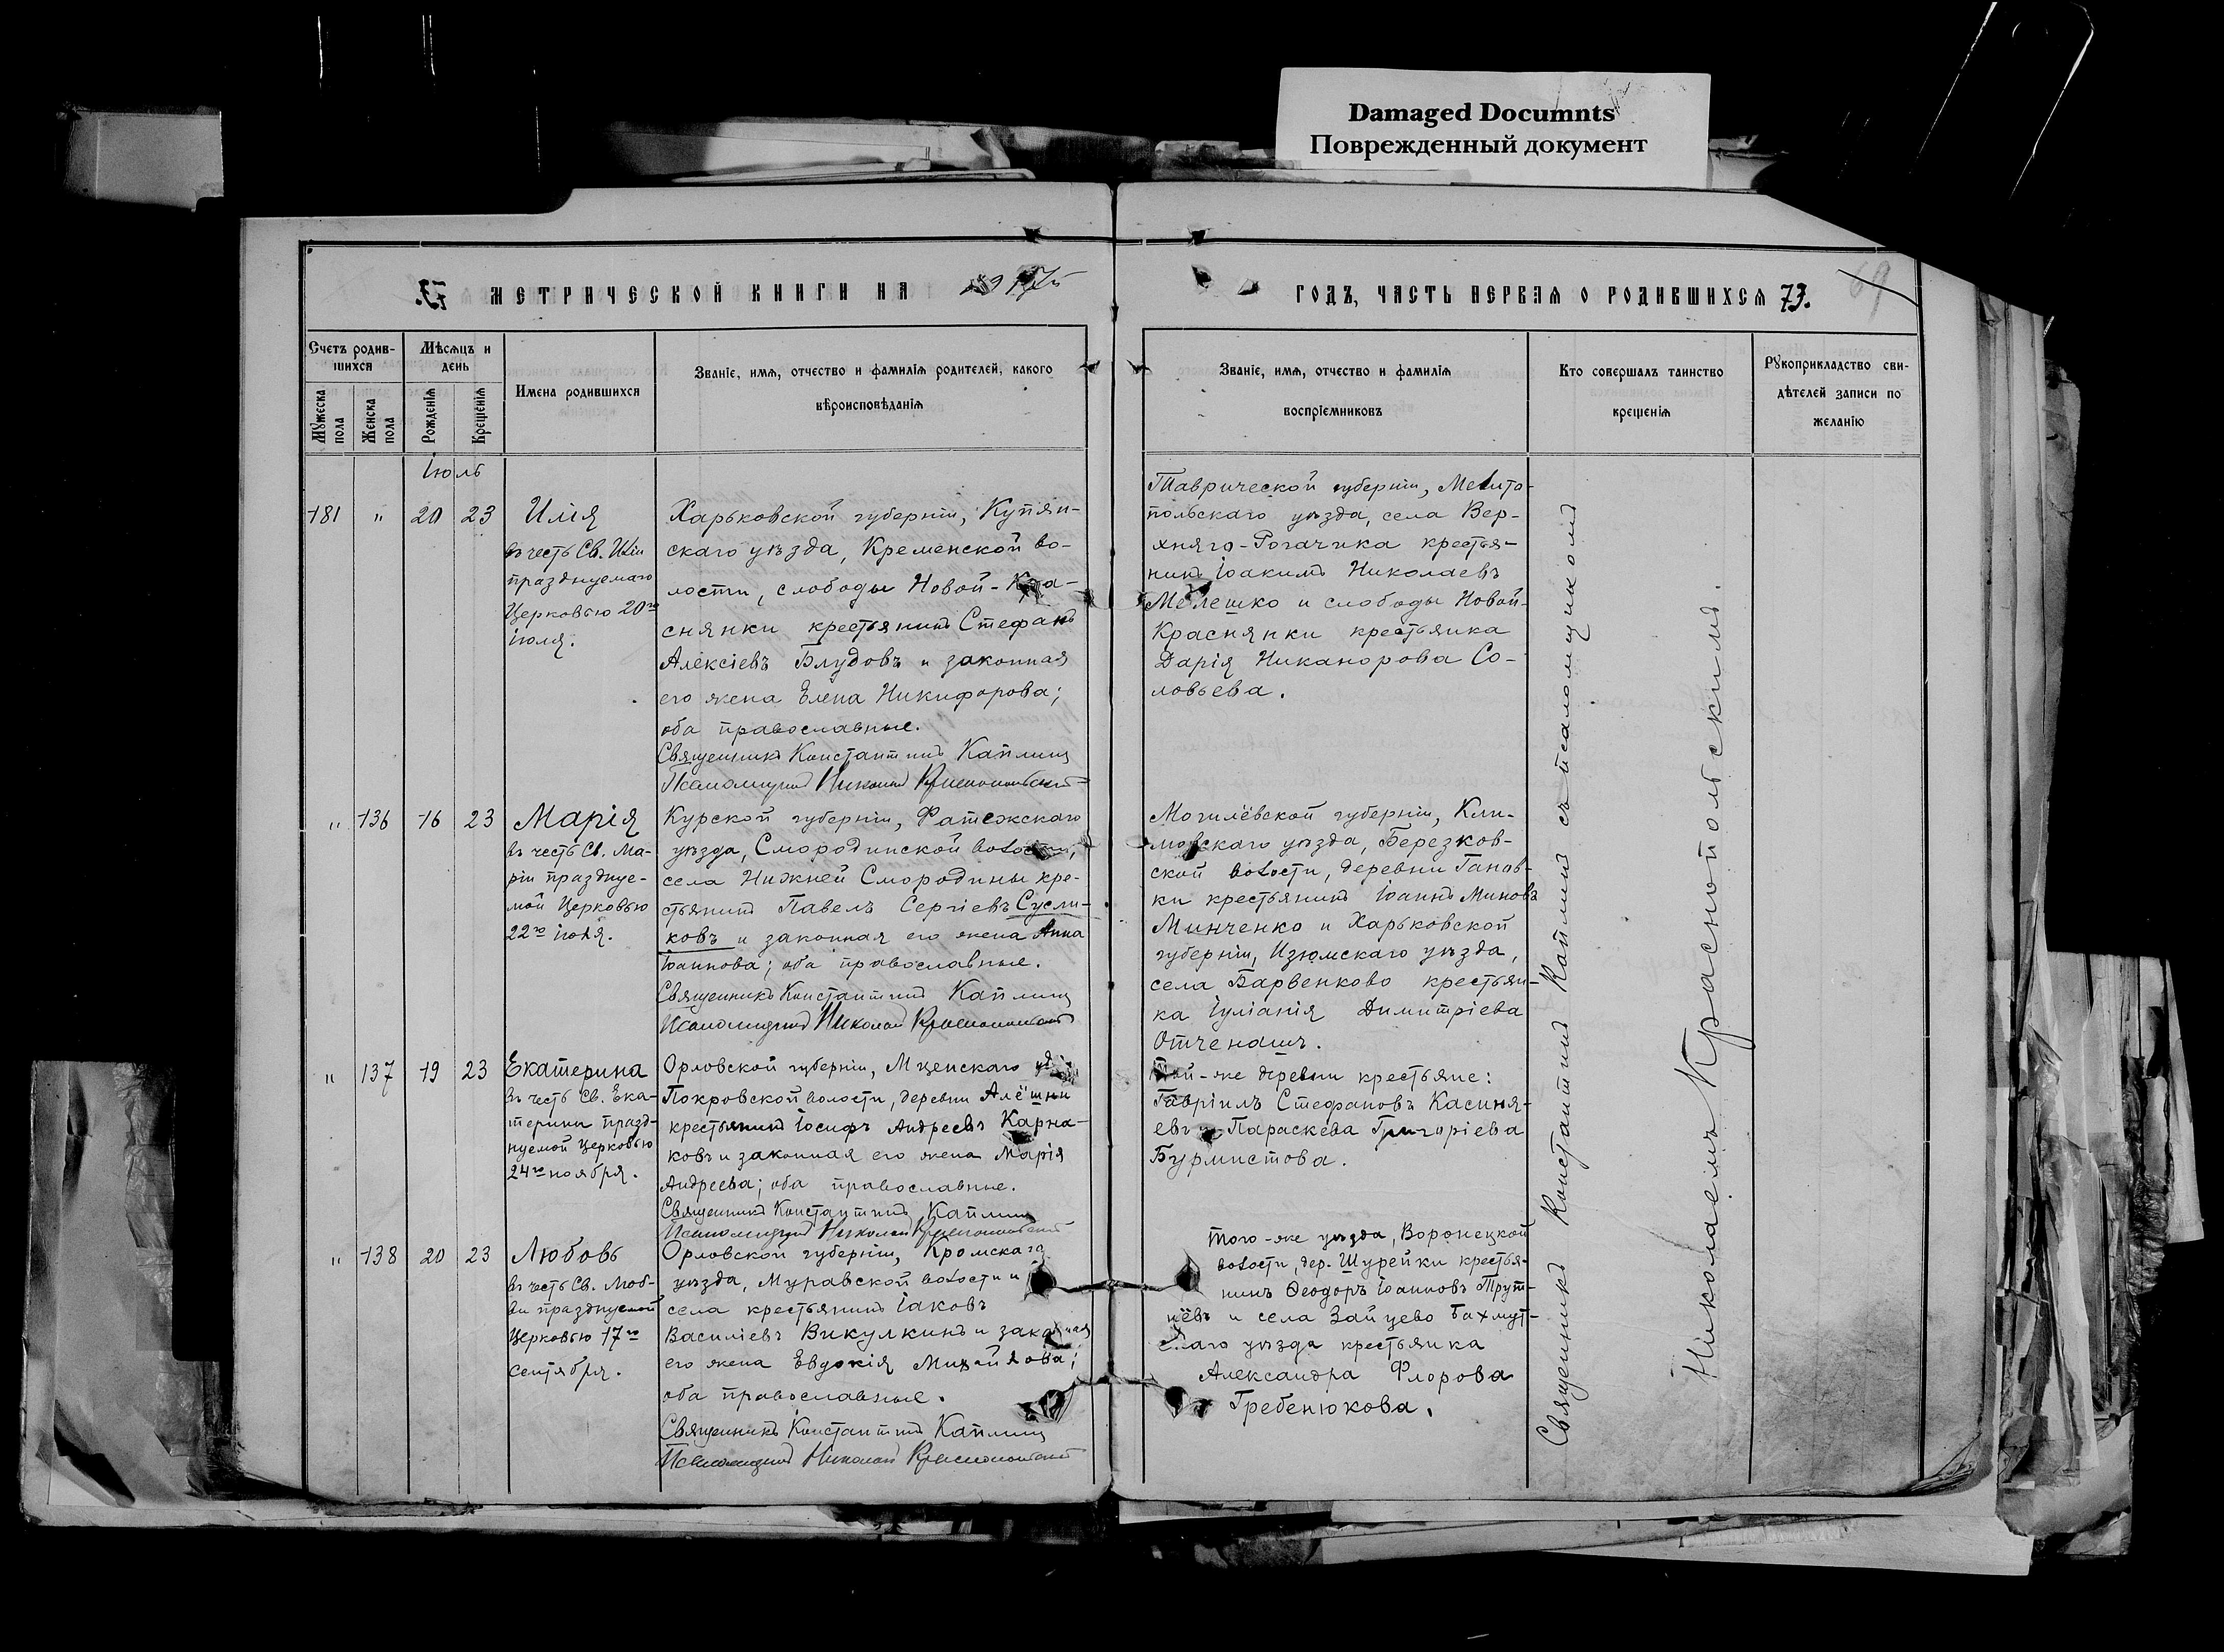 Damaged Documnts
Поврежденный документ
73.
МЕТРИЧЕСКОЙ КНИГИ НА
ГОДЪ, ЧАСТЬ ПЕРВАЯ О РОДИВШИХСЯ 73.
69
Счетъ родив-
шихся
Мужеска
пола
Женска
пола
Мѣсяцъ и
день
Рожденія
Крещенія
Имена родившихся
Званіе, имя, отчество и фамилія родителей, какого
вѣроисповѣданія
Званіе, имя, отчество и фамилія
воспріемниковъ
Кто совершалъ таинство
крещенія
Рукоприкладство сви-
дѣтелей записи по
желанію
Іюль
181 " 20 23 Илія
въ честь Св. Иліи
празднуемаго
Церковью 20го
іюля.
Харьковской губерніи, Купян-
скаго уѣзда, Кременской во-
лости, слободы Новой-Кра-
снянки крестьянинъ Стефанъ
Алексіевъ Блудовъ и законная
его жена Елена Никифорова;
оба православные.
Священникъ Константинъ Каплинъ
Псаломщикъ Николай Краснопольскій
Таврической губерніи, Мелито-
польскаго уѣзда, села Вер-
хняго-Рогачика крестья-
нинъ Іоакимъ Николаевъ
Мелешко и слободы Новой-
Краснянки крестьянка
Дарія Никанорова Со-
ловьева.
" 136 16 23 Марія
въ честь Св. Ма-
ріи празднуе-
мой Церковью
22го іюля.
Курской губерніи, Фатежскаго
уѣзда, Смородинской волости,
села Нижней Смородины кре-
стьянинъ Павелъ Сергіевъ Сусли-
ковъ и законная его жена Анна
Іоаннова; оба православные.
Священникъ Константинъ Каплинъ
Псаломщикъ Николай Краснопольскій
Могилёвской губерніи, Кли-
мовскаго уѣзда, Березков-
ской волости, деревни Ганов-
ки крестьянинъ Іоаннъ Миновъ
Минченко и Харьковской
губерніи, Изюмскаго уѣзда,
села Барвенково крестьян-
ка Іуліанія Димитріева
Отченашъ.
" 137 19 23 Екатерина
въ честь Св. Ека-
терины празд-
нуемой Церковью
24го ноября.
Орловской губерніи, Мценскаго
Покровской волости, деревни Алёшни
крестьянинъ Іосифъ Андреевъ Карна-
ковъ и законная его жена Марія
Андреева; оба православные.
Священникъ Константинъ Каплинъ
Псаломщикъ Николай Краснопольскій
Той-же деревни крестьяне:
Гавріилъ Стефановъ Касиня-
евъ и Параскева Григоріева
Бурмистова.
" 138 20 23 Любовь
въ честь Св. Люб-
ви празднуемой
Церковью 17го
сентября.
Орловской губерніи, Кромскаго
уѣзда, Муравской волости и
села крестьянинъ Іаковъ
Василіевъ Викулкинъ и законная
его жена Евдокія Михайлова;
оба православные.
Священникъ Константинъ Каплинъ
Псаломщикъ Николай Краснопольскій
Того-же уѣзда, Воронецкой
волости, дер. Шурейки крестья-
нинъ Ѳеодоръ Іоанновъ Трут-
нёвъ и села Зайцево Бахмут-
скаго уѣзда крестьянка
Александра Флорова
Гребенюкова.
Священникъ Константинъ Каплинъ съ псаломщикомъ
Николаемъ Краснопольскимъ.